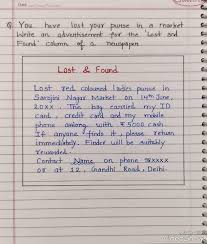 Q. You have lost your purse in a market
Write an advertisement for the 'Lost and
Found' column of a newspaper.
Lost & Found
Lost red coloured ladies purse in
Sarojini Nagar Market on 14th June,
20xx. This bag carried my ID
card, credit card and my mobile
phone along with ₹ 5000 cash.
If anyone finds it, please return
immediately. Finder will be suitably
rewarded.
Contact Name on phone 98xxxx
or at 12, Gandhi Road, Delhi.